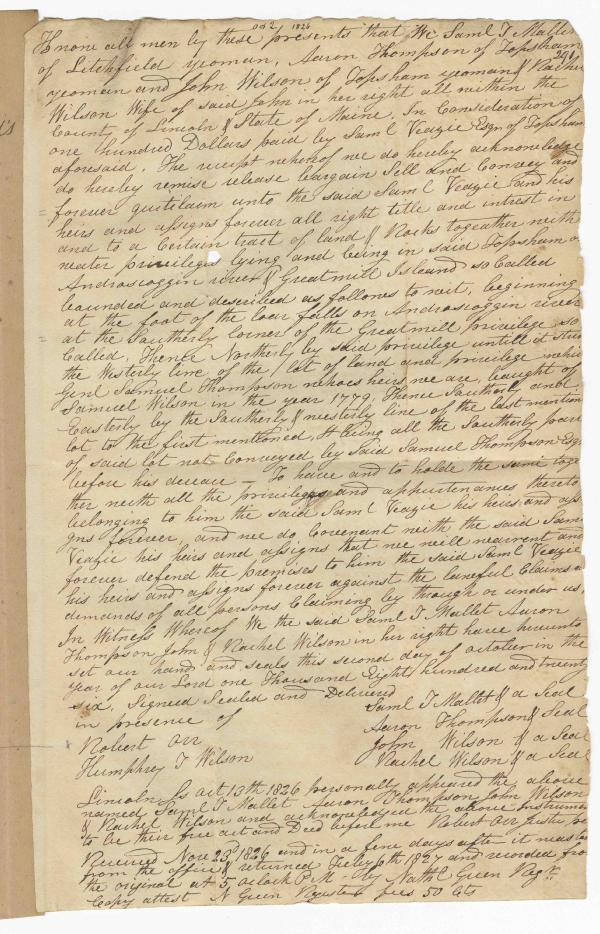 oct 2 1826
Know all men by these presents that We Saml T Mallet
of Litchfield yeoman, Aaron Thompson of Topsham
yeoman and John Wilson of Topsham yeoman & Rachel
Wilson Wife of said John in her right all within the
County of Lincoln & State of Maine. In Consideration of
one hundred Dollars paid by Saml Veazie Esqr of Topsham
aforesaid, The receipt whereof we do hereby acknowledge
do hereby remise release bargain Sell and Convey and
forever quitclaim unto the said Saml Veazie and his
heirs and assigns forever all right title and intrest in
and to a Certain tract of land & Rocks togeather with
water privileges lying and being in said Topsham on
Androscoggin river & Greatmill Island so Called
bounded and described as follows to wit, beginning
at the foot of the lour falls on Androscoggin river
at the Southerly corner of the Greatmill privilege so
Called, Thence Northerly by said privilege untill it
the Westerly line of the lot of land and privilege
Genl Samuel Thompson whoes heirs we are, bought of
Samuel Wilson in the year 1779, Thence Southerly and
Easterly by the Southerly & westerly line of the last mention
lot to the first mentioned, It being all the Southerly part
of said lot not Conveyed by Said Samuel Thompson Esqr
before his decease — To have and to holde the same toge
ther with all the privileges and appurtenances thereto
belonging to him the said Saml Veazie his heirs and ass
igns forever, and we do Covenant with the said Saml
Veazie his heirs and assigns that we will warrent and
forever defend the premises to him the said Saml Veazie
his heirs and assigns forever against the lawful Claims &
demands of all persons Claiming by through or under us,
In Witness Whereof We the said Saml T Mallet Aaron
Thompson John & Rachel Wilson in her right have hereunto
set our hands and seals this second day of october in the
year of our Lord one Thousand Eight hundred and twenty
six. Signed Sealed and Delivered
in presence of
Robert Orr
Humphrey T Wilson
Saml T Mallet & a Seal
Aaron Thompson & Seal
John Wilson & a Seal
Rachel Wilson & a Seal
Lincoln Ss oct 13th 1826 personally appeared the above
named Saml T Mallet Aaron Thompson John Wilson
& Rachel Wilson and acknowledged the above Instrumen
to be their free act and Deed before me Robert Orr Justice pe
Received Nove 23d 1826 and in a few days after it was
from the office & returned Feby 1827 and recorded from
the original at 5 oclock P M by Nathl Green Regr
Copy attest N Green Register fees 50 Cts